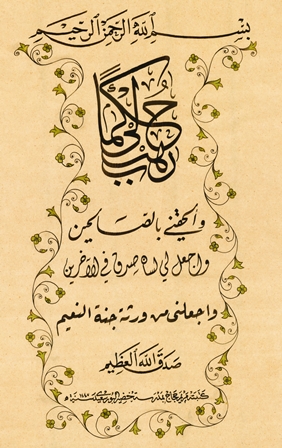 بسم الله الرحمن الرحيم
رب هب لي حكما
وألحقني بالصالحين
واجعل لي لسان صدق في الآخرين
واجعلني من ورثة جنة النعيم
صدق الله العظيم